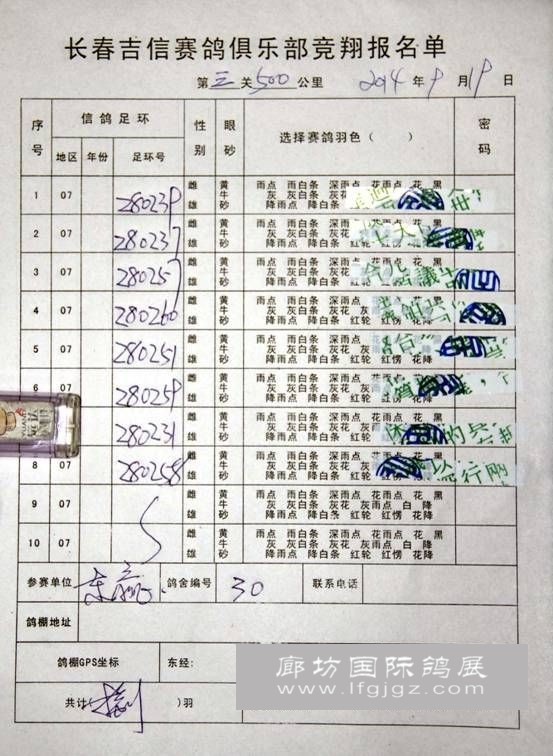 长春吉信赛鸽俱乐部竞翔报名单
第 三 关 500 公里 2014 年 9 月 19 日
序号 信鸽足环 性别 眼砂 选择赛鸽羽色（ ） 密码
地区 年份 足环号
1 07 280239 雌 雄 黄 牛 砂
雨点 雨白条 深雨点 花雨点 花 黑
灰 灰白条 灰花
降雨点 降白条
2 07 280237 雌 雄 黄 牛 砂
雨点 雨白条 深雨点 花雨点 花 黑
灰 灰白条 灰花
降雨点 降白条 红
3 07 280257 雌 雄 黄 牛 砂
雨点 雨白条 深雨点 花雨点 花 黑
灰 灰白条 灰花
降雨点 降白条 红轮
4 07 280260 雌 雄 黄 牛 砂
雨点 雨白条 深雨点 花雨点 花 黑
灰 灰白条 灰花 灰
降雨点 降白条 红轮
5 07 280251 雌 雄 黄 牛 砂
雨点 雨白条 深雨点 花雨点 花 黑
灰 灰白条 灰花 灰
降雨点 降白条 红轮 红愣
6 07 280259 雌 雄 黄 牛 砂
雨点 雨白条 深雨点 花雨点 花 黑
灰 灰白条 灰花
降雨点 降白条 红轮 红
07 280231 雌 雄 黄 牛 砂
雨点 雨白条 深雨点 花雨点 花 黑
灰 灰白条 灰花
降雨点 降白条 红轮 红
8 07 280258 雌 雄 黄 牛 砂
雨点 雨白条 深雨点 花雨点 花 黑
灰 灰白条 灰花
降雨点 降白条 红轮
9 07 雌 雄 黄 牛 砂
雨点 雨白条 深雨点 花雨点 花 黑
灰 灰白条 灰花 灰雨点 白 降
降雨点 降白条 红轮 红愣 花降
10 07 雌 雄 黄 牛 砂
雨点 雨白条 深雨点 花雨点 花 黑
灰 灰白条 灰花 灰雨点 白 降
降雨点 降白条 红轮 红愣 花降
参赛单位 鸽舍编号 30 联系电话
鸽棚地址
鸽棚GPS坐标 东经:
共计( )羽
廊坊国际鸽展
www.lfgjgz.com